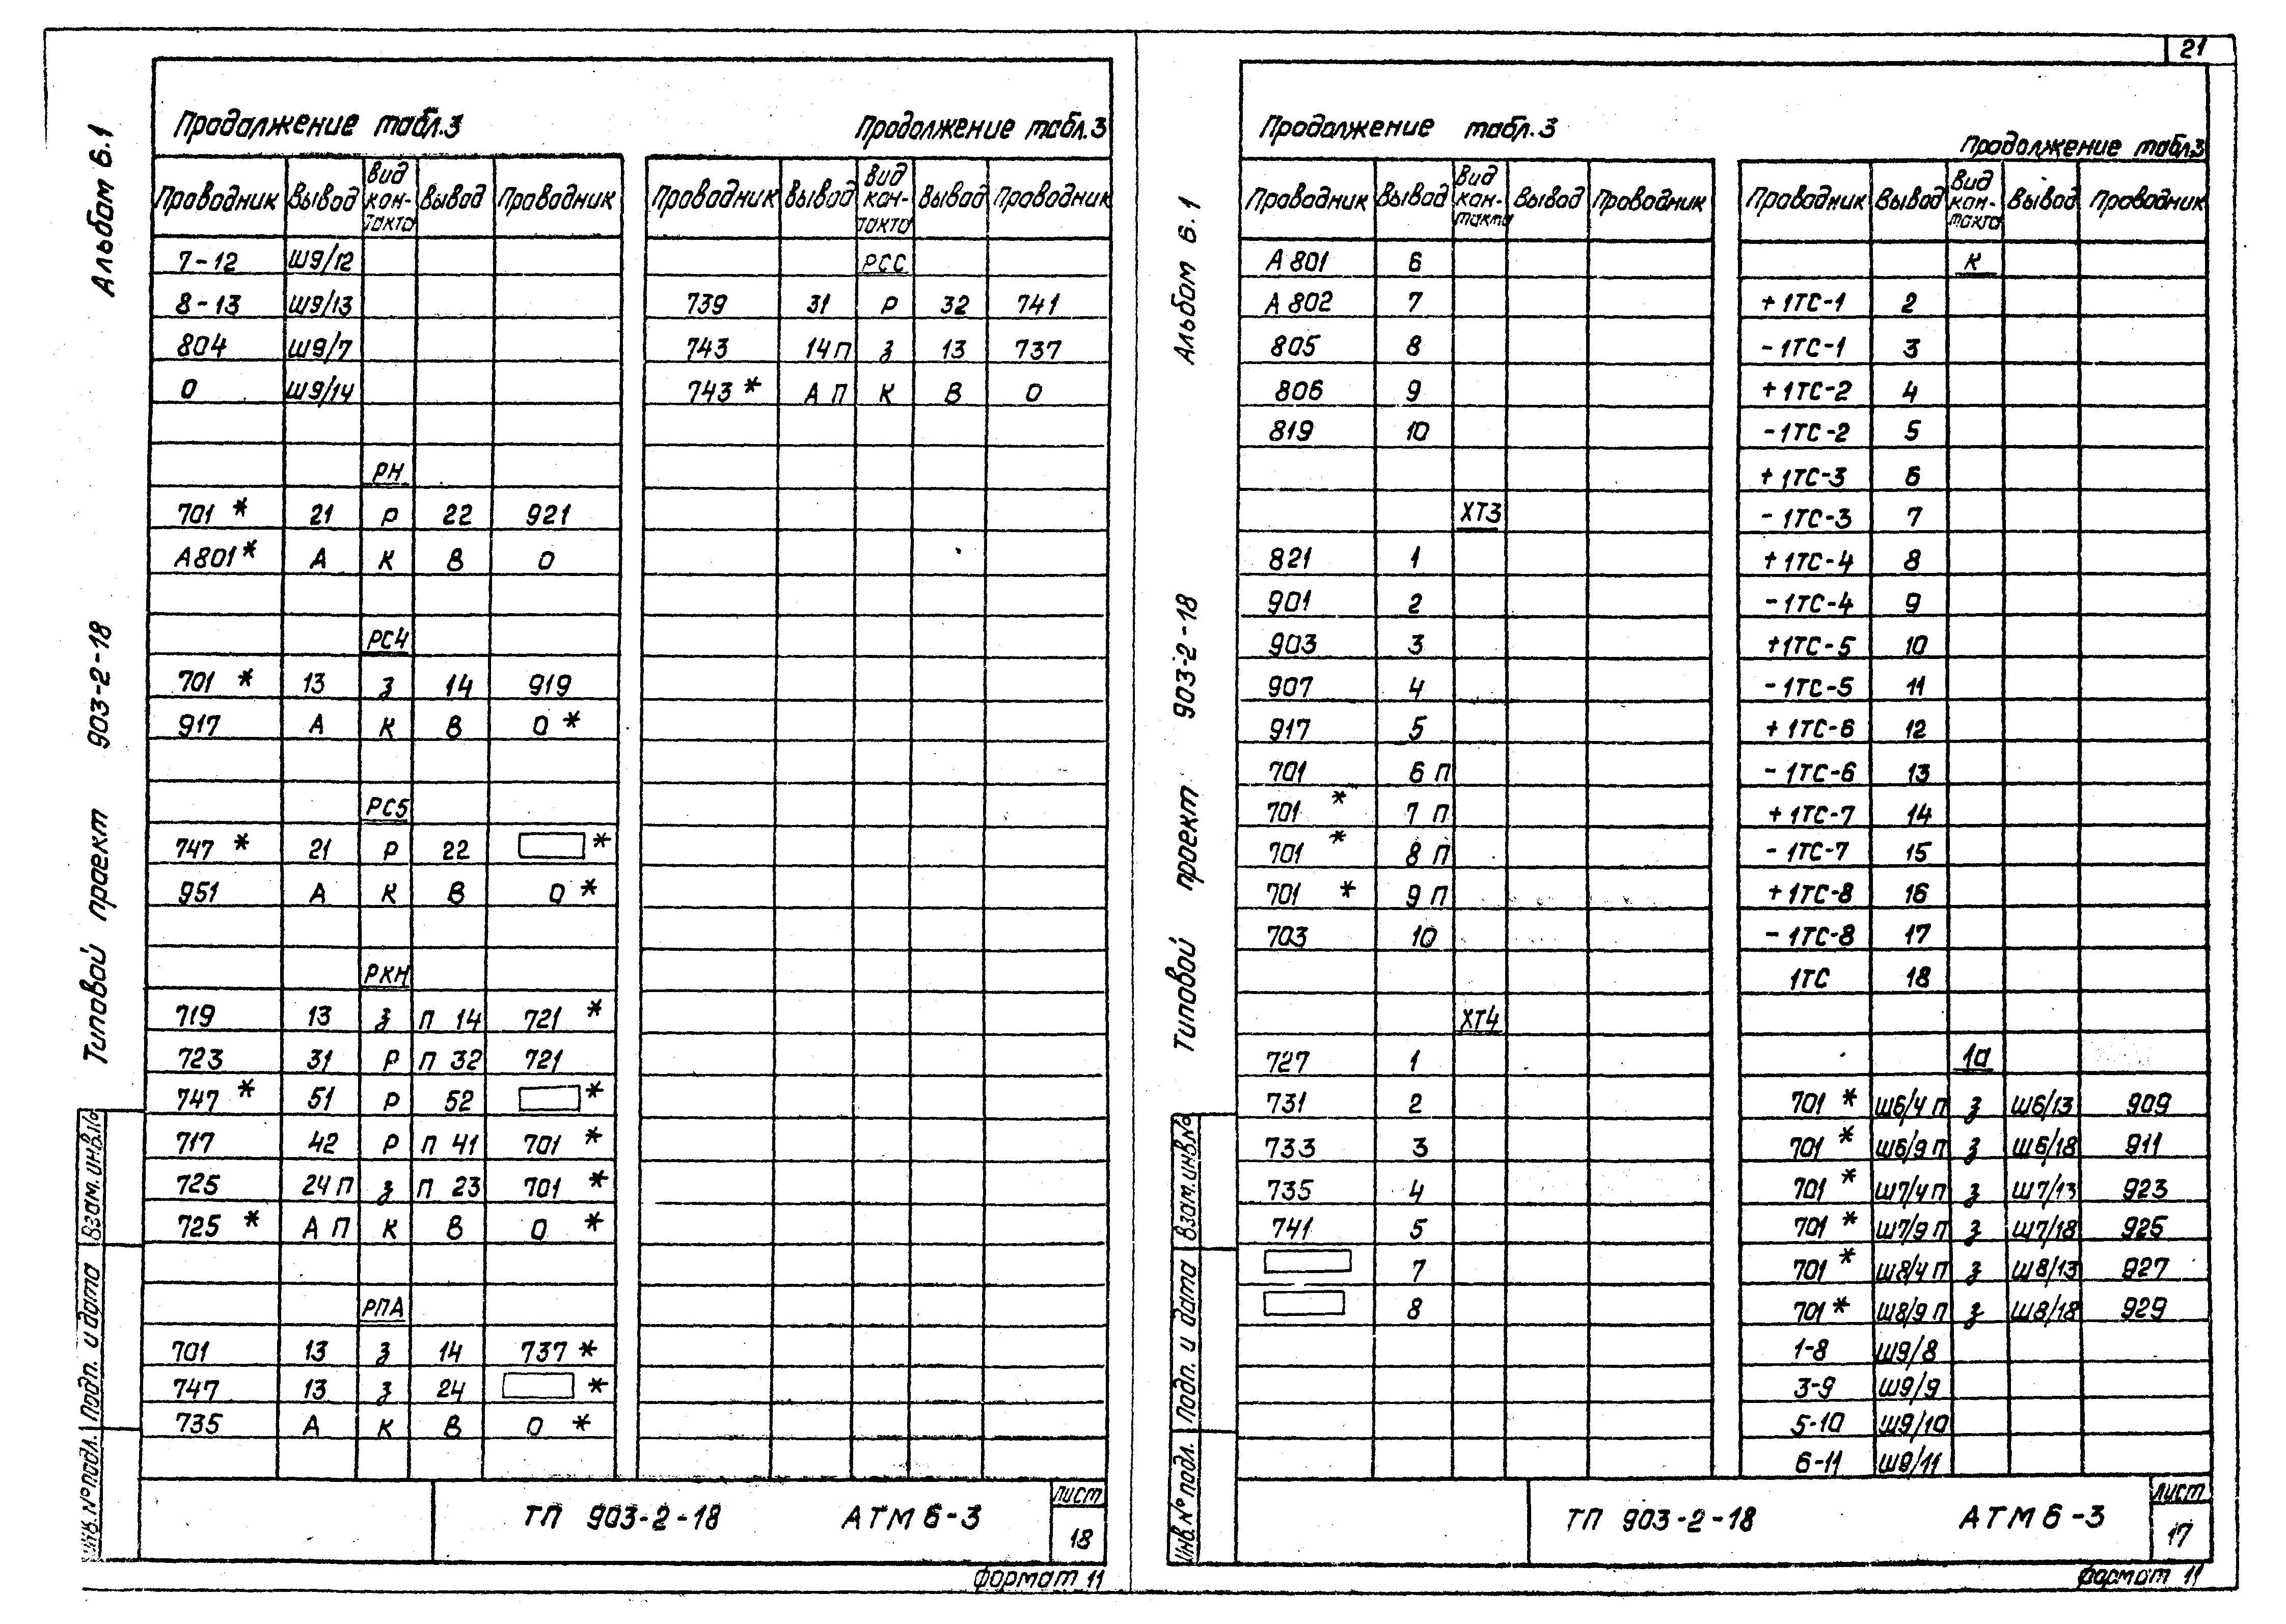 21
Альбом 6.1
Типовой проект 903-2-18
Взам. инв. №
Подп. и дата
Инв. № подл.
Продолжение табл.3
Проводник Вывод Вид кон-такта Вывод Проводник
7-12 Ш9/12
8-13 Ш9/13
804 Ш9/7
0 Ш9/14
РН
701 * 21 Р 22 921
А801 * А К В 0
РС4
701 * 13 З 14 919
917 А К В 0 *
РС5
747 * 21 Р 22 *
951 А К В 0 *
РКН
719 13 З П 14 721 *
723 31 Р П 32 721
747 * 51 Р 52 *
717 42 Р П 41 701 *
725 24 П З П 23 701 *
725 * А П К В 0 *
РПА
701 13 З 14 737 *
747 13 З 24 *
735 А К В 0 *
Продолжение табл.3
Проводник Вывод Вид кон-такта Вывод Проводник
РСС
739 31 Р 32 741
743 14 П З 13 737
743 * А П К В 0
ТП 903-2-18 АТМ 6-3
Лист
18
Формат 11
Альбом 6.1
Типовой проект 903-2-18
Взам. инв. №
Подп. и дата
Инв. № подл.
Продолжение табл.3
Проводник Вывод Вид кон-такта Вывод Проводник
А 801 6
А 802 7
805 8
806 9
819 10
ХТ3
821 1
901 2
903 3
907 4
917 5
701 6 П
701 * 7 П
701 * 8 П
701 * 9 П
703 10
ХТ4
727 1
731 2
733 3
735 4
741 5
7
8
Продолжение табл.3
Проводник Вывод Вид кон-такта Вывод Проводник
К
+1ТС-1 2
-1ТС-1 3
+1ТС-2 4
-1ТС-2 5
+1ТС-3 6
-1ТС-3 7
+1ТС-4 8
-1ТС-4 9
+1ТС-5 10
-1ТС-5 11
+1ТС-6 12
-1ТС-6 13
+1ТС-7 14
-1ТС-7 15
+1ТС-8 16
-1ТС-8 17
1ТС 18
1а
701 * Ш6/4 П З Ш6/13 909
701 * Ш6/9 П З Ш6/18 911
701 * Ш7/4 П З Ш7/13 923
701 * Ш7/9 П З Ш7/18 925
701 * Ш8/4 П З Ш8/13 927
701 * Ш8/9 П З Ш8/18 929
1-8 Ш9/8
3-9 Ш9/9
5-10 Ш9/10
6-11 Ш9/11
ТП 903-2-18 АТМ 6-3
Лист
17
Формат 11